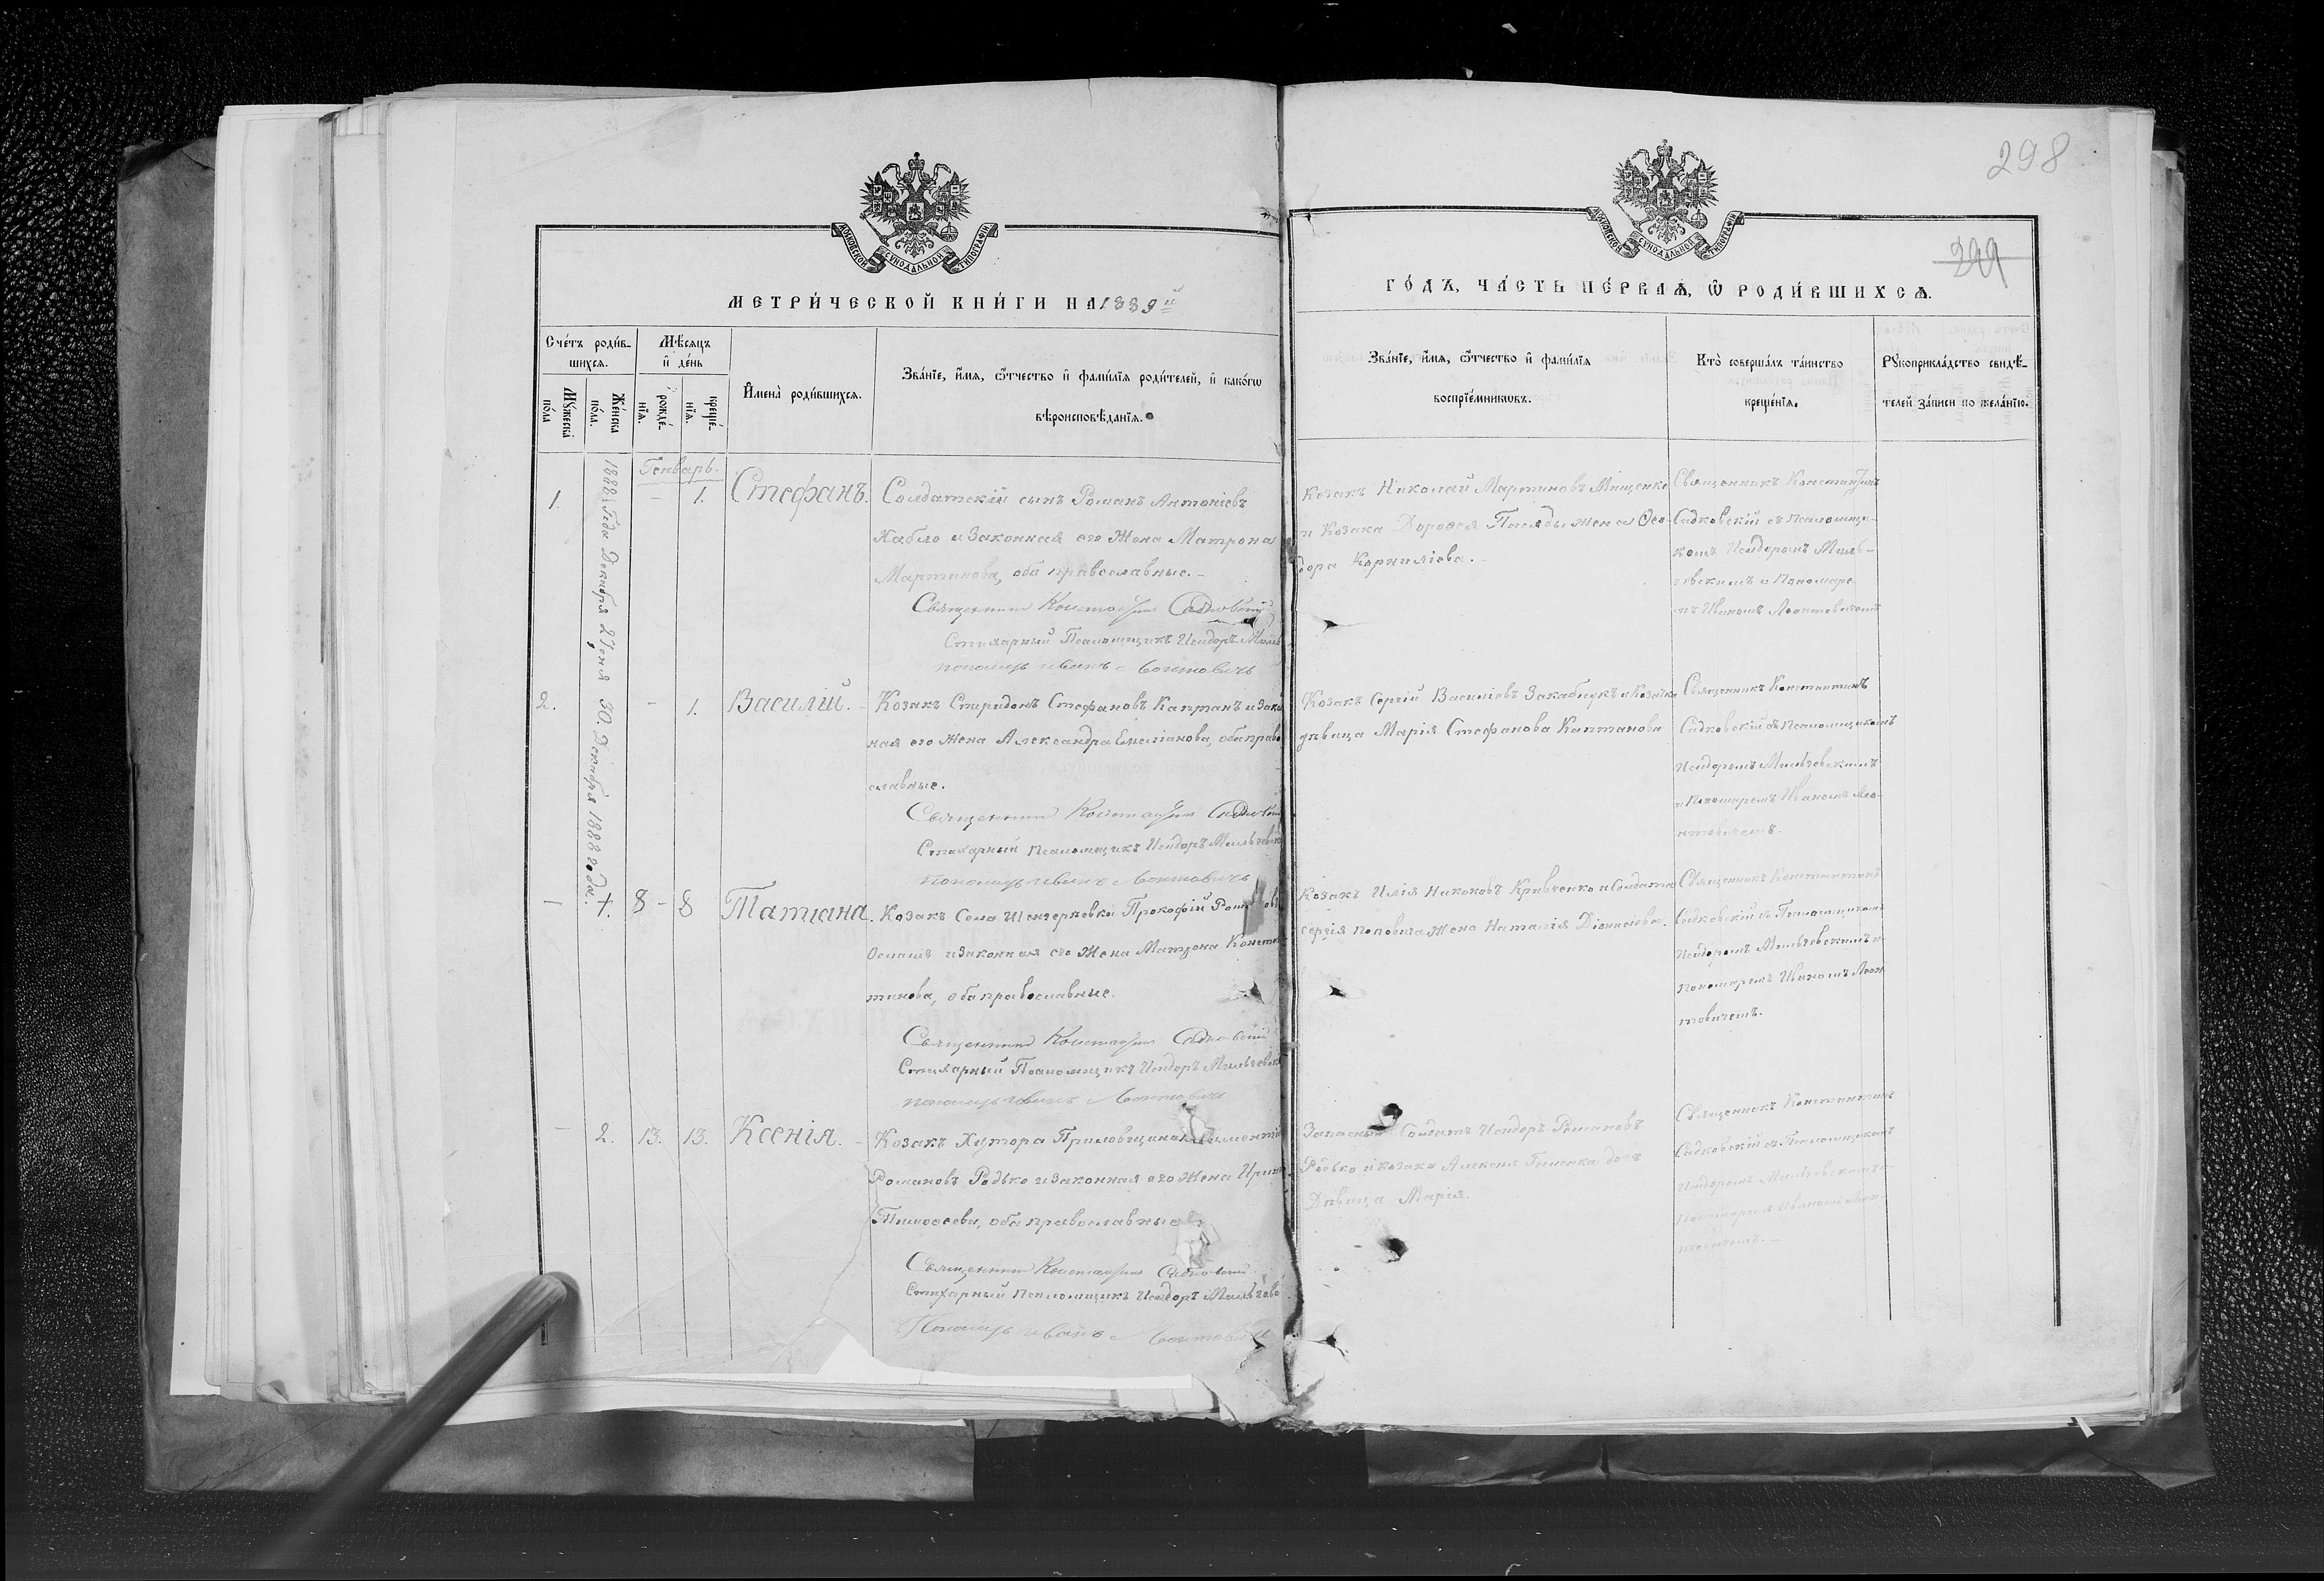 298
299
МОСКОВСКОЙ СѴНОДАЛЬНОЙ ТИПОГРАФІИ
МОСКОВСКОЙ СѴНОДАЛЬНОЙ ТИПОГРАФІИ
МЕТРИ́ЧЕСКОЙ КНИ́ГИ НА 1889й
ГО́ДЪ, ЧА́СТЬ ПЕ́РВАѦ, Ѡ҆ РОДИ́ВШИХСѦ.
Сче́тъ роди́в-
шихсѧ.
Мꙋ́жеска по́ла
Же́нска по́ла.
Мѣ́сѧцъ
и҆ де́нь
рожде́-
нїѧ.
креще́-
нїѧ.
И҆мена̀ роди́вшихсѧ.
Зва́нїе, и҆́мѧ, ѻ҆́тчество и҆ фамі́лїѧ роди́телей, и҆ како́гѡ
вѣроисповѣ́данїѧ.
Зва́нїе, и҆́мѧ, ѻ҆́тчество и҆ фамі́лїѧ
воспрїе́мникѡвъ.
Кто̀ соверша́лъ та́инство
креще́нїѧ.
Рꙋкоприкла́дство свидѣ́-
телей за́писи по жела́нїю.
Генварь.
1888 Года Декабря 29дня 30. Декабря 1888 года.
1.
-
1.
Стефанъ.
Солдатскій сынъ Романъ Антоніевъ
Хабло и Законная его Жена Матрона
Мартинова, оба православные.
Священникъ Константинъ Садковскій
Стихарный Псаломщикъ Исидоръ
пономарь Иванъ Леонтовичь
Козакъ Николай Мартиновъ Мищенко
и Козака Дорофея Паляды жена Ѳео-
дора Корниліева.
Священникъ Константинъ
Садковскій съ Псаломщи-
комъ Исидоромъ Миль-
евскимъ и Пономаре-
мъ Иваномъ Леонтовичемъ
2.
-
1.
Василій.
Козакъ Спиридонъ Стефановъ Каптанъ и Закон
ная его Жена Александра Емеліанова, оба право
славные.
Священникъ Константинъ Садковскій
Стихарный Псаломщикъ Исидоръ
Пономарь Иванъ Леонтовичь
Козакъ Сергій Василіевъ Закаблукъ и Козачка
дѣвица Марія Стефанова Каптанова
Священникъ Константинъ
Садковскій съ Псаломщикомъ
Исидоромъ
и Пономаремъ Иваномъ Лео-
нтовичемъ.
-
1.
8
-
8
Татіана.
Козакъ Села Прокофій
и законная его Жена Матрона Констан
тинова, оба православные.
Священникъ Константинъ Садковскій
Стихарный Псаломщикъ Исидоръ
пономарь Иванъ Леонтовичь
Козакъ Илія Никоновъ Кривченко и Солдата
Сергія Поповича Жена Наталія Діонисіева.
Священникъ Константинъ
Садковскій съ Псаломщикомъ
Исидоромъ и
Пономаремъ Иваномъ Леон
товичемъ.
-
2.
13.
13.
Ксенія.
Козакъ Хутора
Романовъ Родько и законная его Жена Ирина
Тимоѳеева, оба православные
Священникъ Константинъ Садковскій
Стихарный Псаломщикъ Исидоръ
Пономарь Иванъ Леонтовичь
Запасный Солдатъ Исидоръ Романовъ
Родько и козака Алексея дочь
Дѣвица Марія.
Священникъ Константинъ
Садковскій съ Псаломщикомъ
Исидоромъ
Пономаремъ Иваномъ Леон-
товичемъ.